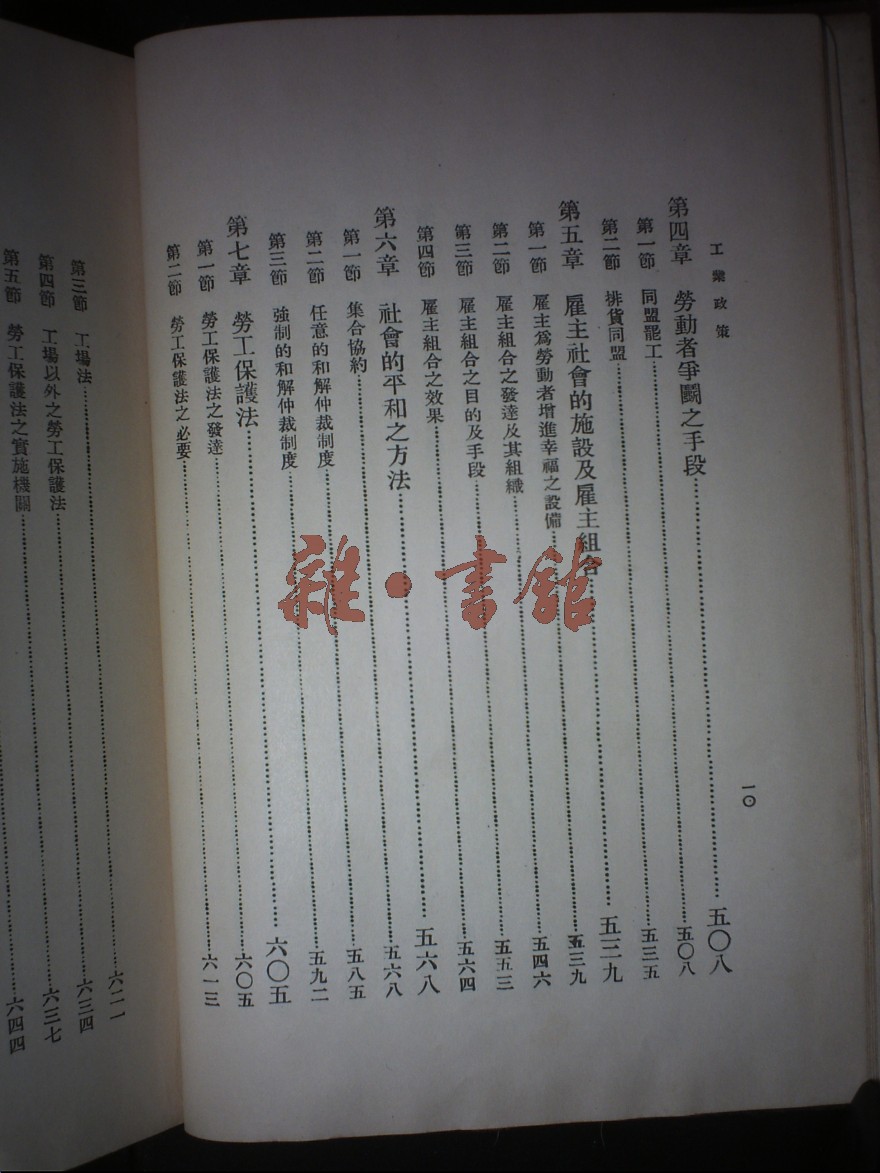 工業政策
一〇
第四章 勞動者爭鬭之手段……五〇八
第一節 同盟罷工……五〇八
第二節 排貨同盟……五三五
第五章 雇主社會的施設及雇主組合……五三九
第一節 雇主爲勞動者增進幸福之設備……五三九
第二節 雇主組合之發達及其組織……五四六
第三節 雇主組合之目的及手段……五五三
第四節 雇主組合之效果……五六四
第六章 社會的平和之方法……五六八
第一節 集合協約……五六八
第二節 任意的和解仲裁制度……五八五
第三節 強制的和解仲裁制度……五九二
第七章 勞工保護法……六〇五
第一節 勞工保護法之發達……六〇五
第二節 勞工保護法之必要……六一三
第三節 工場法……六二一
第四節 工場以外之勞工保護法……六三四
第五節 勞工保護法之實施機關……六三七
六四四
雜·書館